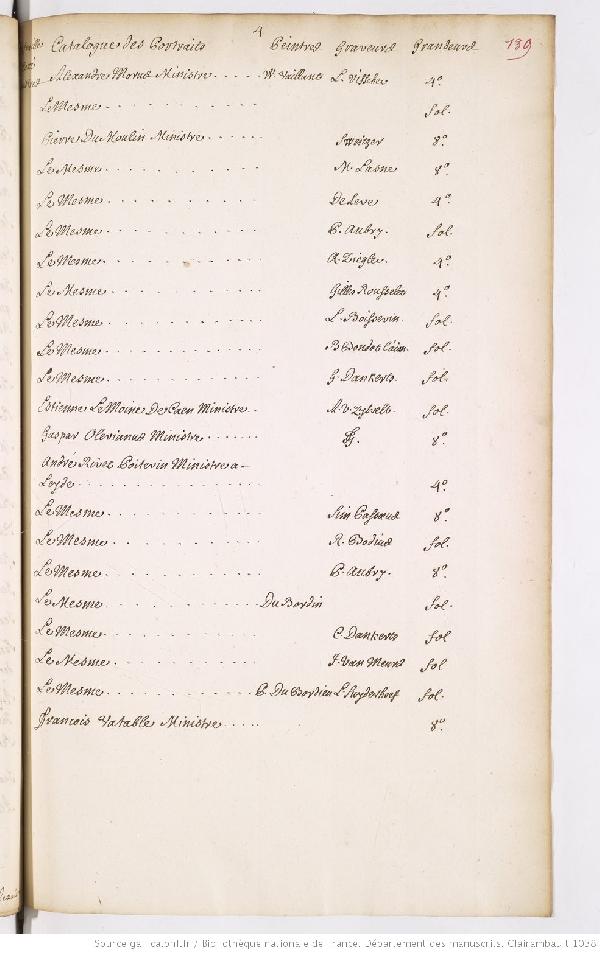 4
Catalogue des Portraits Peintres Graveurs Grandeurs 739
Alexandre Morus Ministre W. Vaillants L. Visscher 4°
Le Mesme fol.
Pierre Du Moulin Ministre Sweitzer 8°
Le Mesme M. Lasne 8°
Le Mesme De Leve 4°
Le Mesme P. Aubry. fol.
Le Mesme A. Ziegler 4°
Le Mesme Gilles Rousselet 4°
Le Mesme L. Boissevin fol.
Le Mesme fol.
Le Mesme G. Dankerts fol.
Estienne Le Moine De Caen Ministre A. V. Zylvelt fol.
Gaspar Olevianus Ministre 8°
André Rivet Poitevin Ministre a
Leyde 4°
Le Mesme Sim Passeus 8°
Le Mesme R. Bodius fol.
Le Mesme P. Aubry. 8°
Le Mesme Du Bordin fol.
Le Mesme C. Dankerts fol
Le Mesme J. Van Meurs fol
Le Mesme P. Du Bordieu L. Suyderhoef fol.
François Vatable Ministre 8°
Source gallica.bnf.fr / Bibliothèque nationale de France. Département des manuscrits. Clairambault 1038